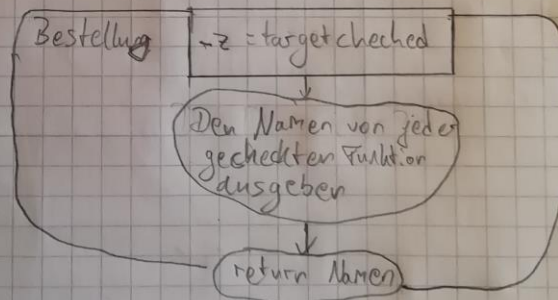 Bestellung
-z = targetcheched
Den Namen von jeder
gecheckten Funktion
ausgeben
return Namen